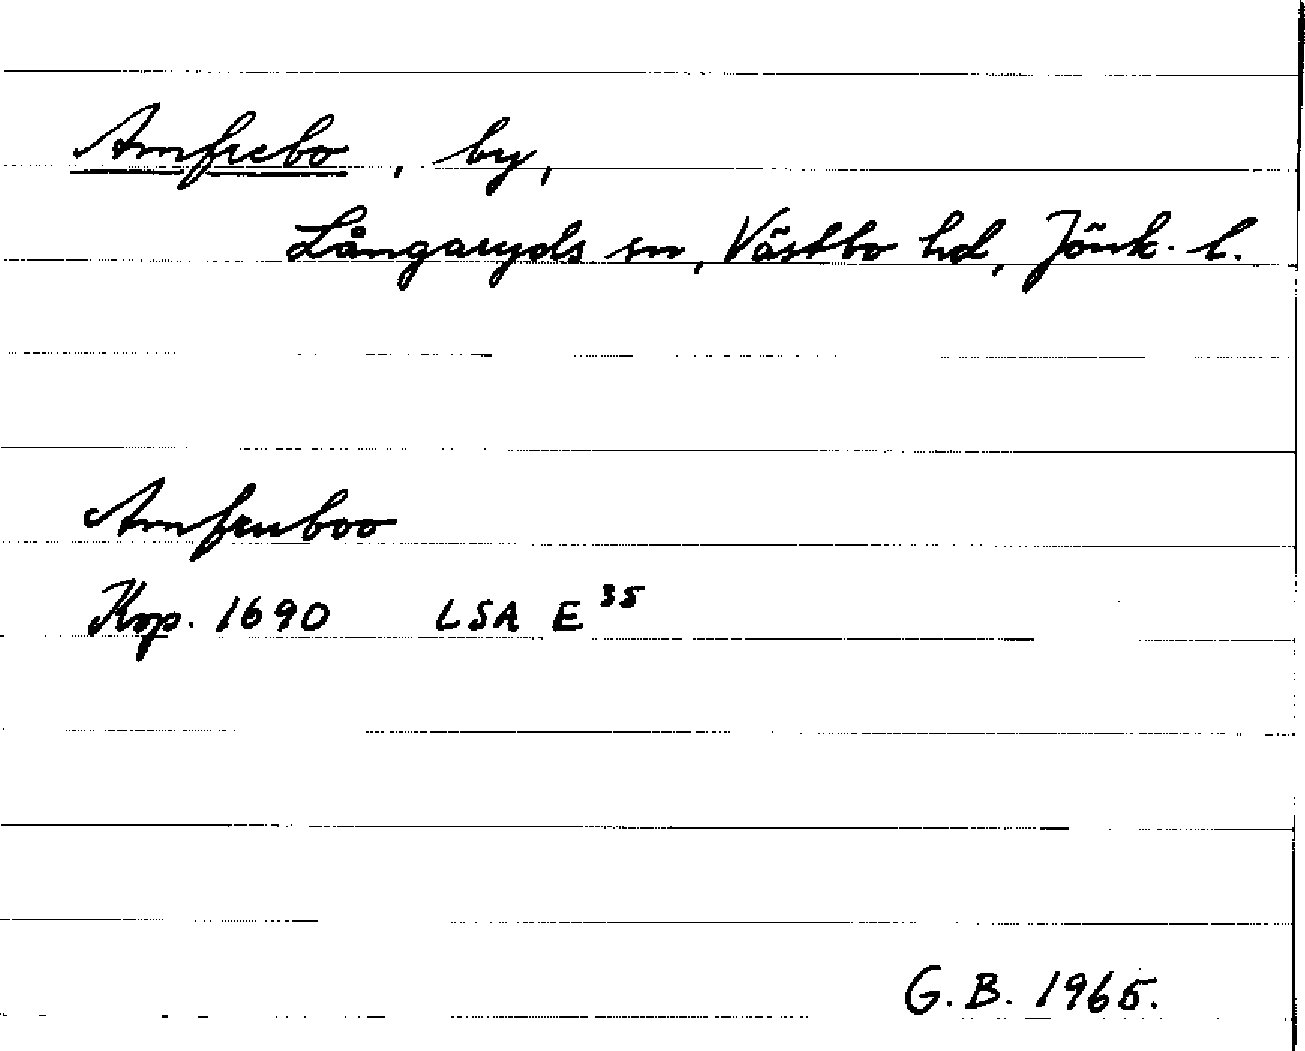 Amfrebo, by,
Långaryds sn, Västbo hd, Jönk. l.
Amfruboo
Kop. 1690 LSA E 35
G. B. 1965.